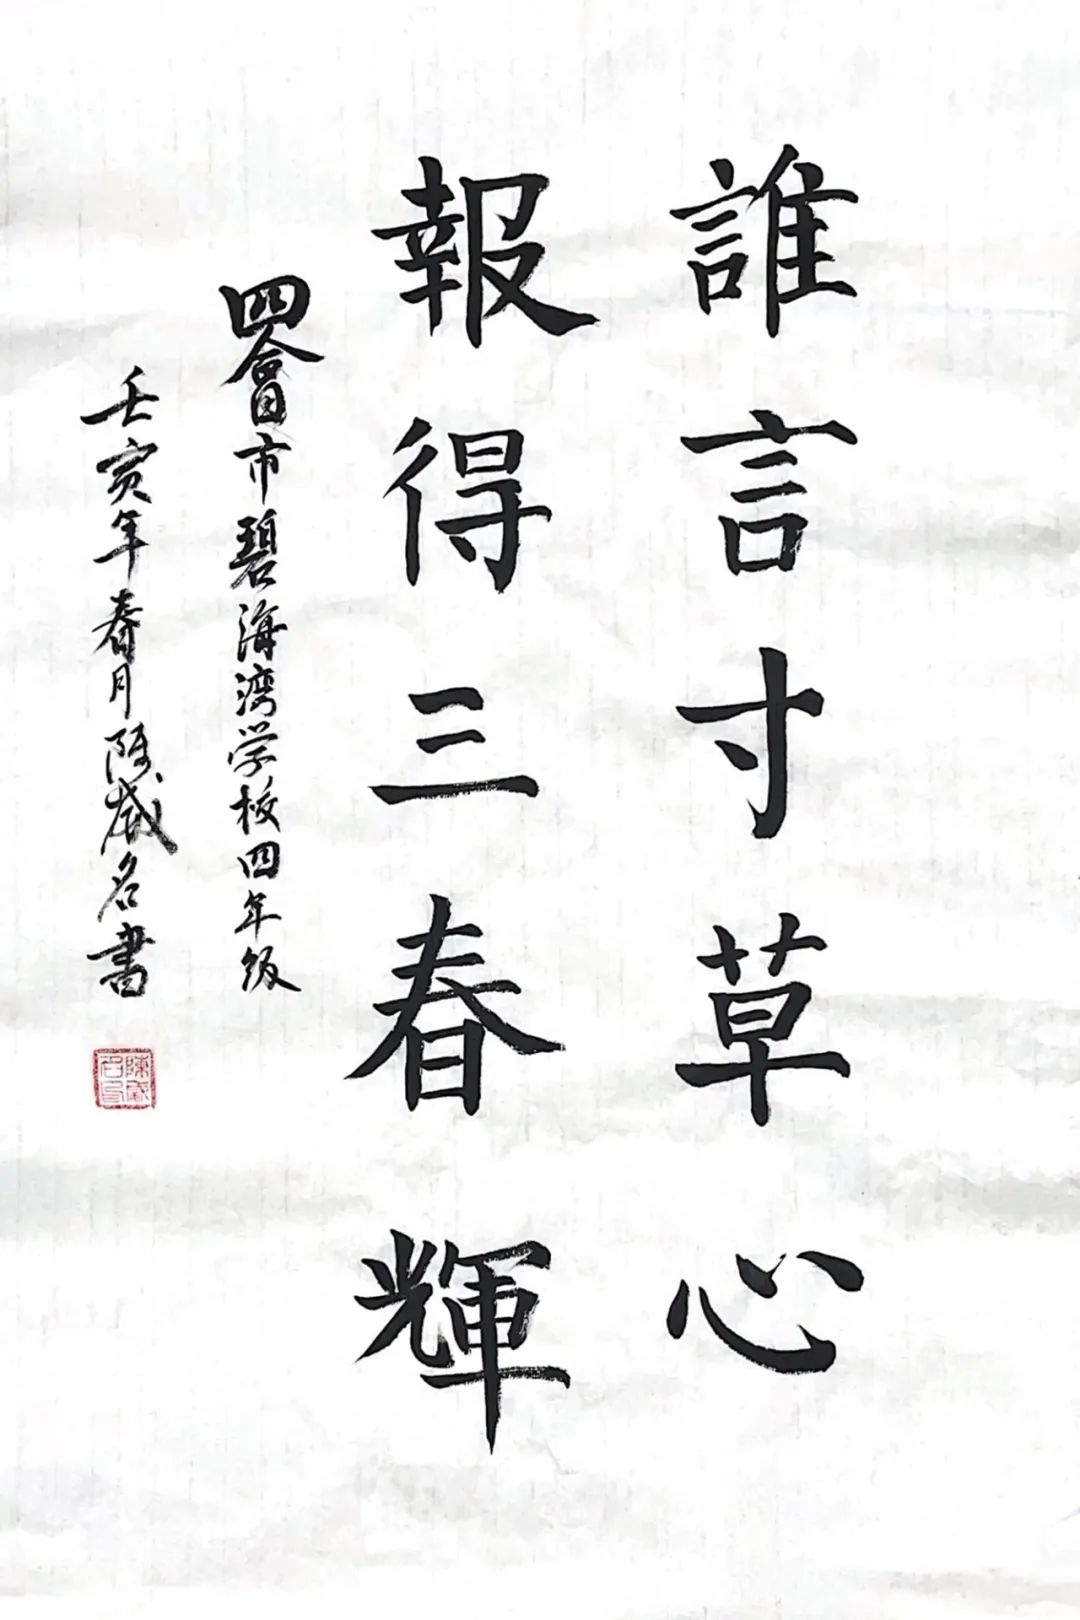 誰言寸草心
報得三春輝
四會市碧海湾学校四年级
壬寅年春月陈威名書